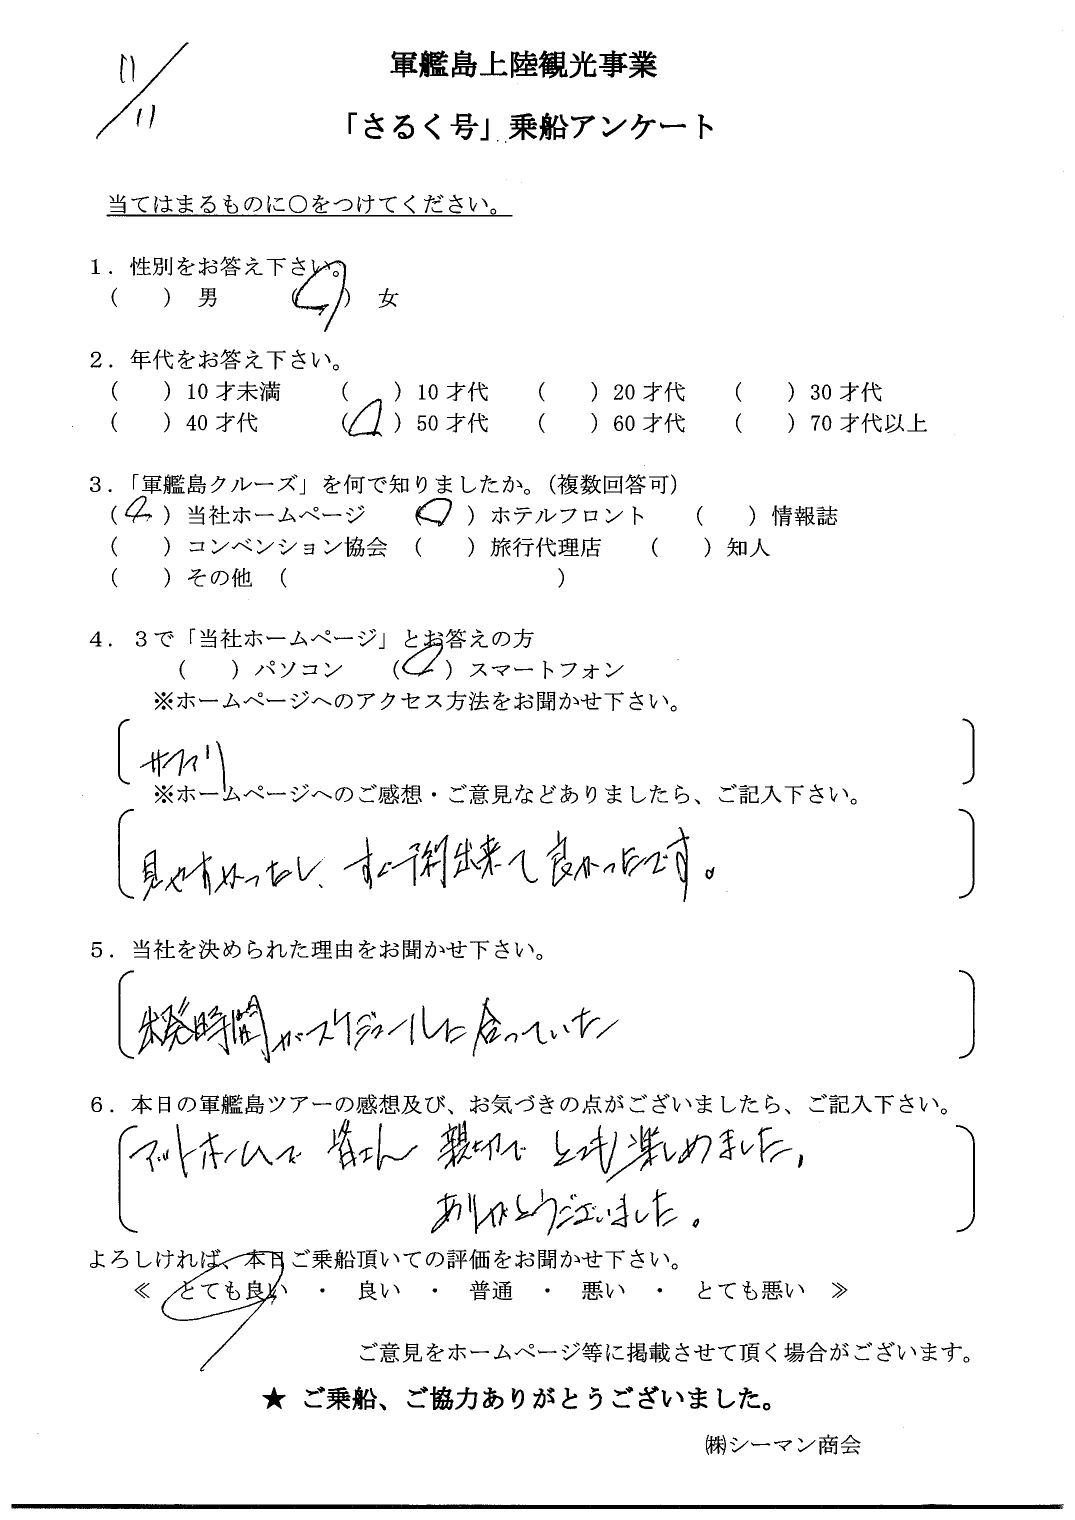 11/11
軍艦島上陸観光事業
「さるく号」乗船アンケート
当てはまるものに○をつけてください。
１．性別をお答え下さい。
（　）男　（○）女
２．年代をお答え下さい。
（　）10才未満　（　）10才代　（　）20才代　（　）30才代
（　）40才代　（○）50才代　（　）60才代　（　）70才代以上
３．「軍艦島クルーズ」を何で知りましたか。（複数回答可）
（○）当社ホームページ　（○）ホテルフロント　（　）情報誌
（　）コンベンション協会　（　）旅行代理店　（　）知人
（　）その他　（　　　）
４．３で「当社ホームページ」とお答えの方
（　）パソコン　（○）スマートフォン
※ホームページへのアクセス方法をお聞かせ下さい。
サファリ
※ホームページへのご感想・ご意見などありましたら、ご記入下さい。
見やすかったし、すぐ予約出来て良かったです。
５．当社を決められた理由をお聞かせ下さい。
出発時間がスケジュールに合っていた
６．本日の軍艦島ツアーの感想及び、お気づきの点がございましたら、ご記入下さい。
アットホームで皆さん親切でとても楽しめました。
ありがとうございました。
よろしければ、本日ご乗船頂いての評価をお聞かせ下さい。
≪　とても良い　・　良い　・　普通　・　悪い　・　とても悪い　≫
ご意見をホームページ等に掲載させて頂く場合がございます。
★ ご乗船、ご協力ありがとうございました。
㈱シーマン商会